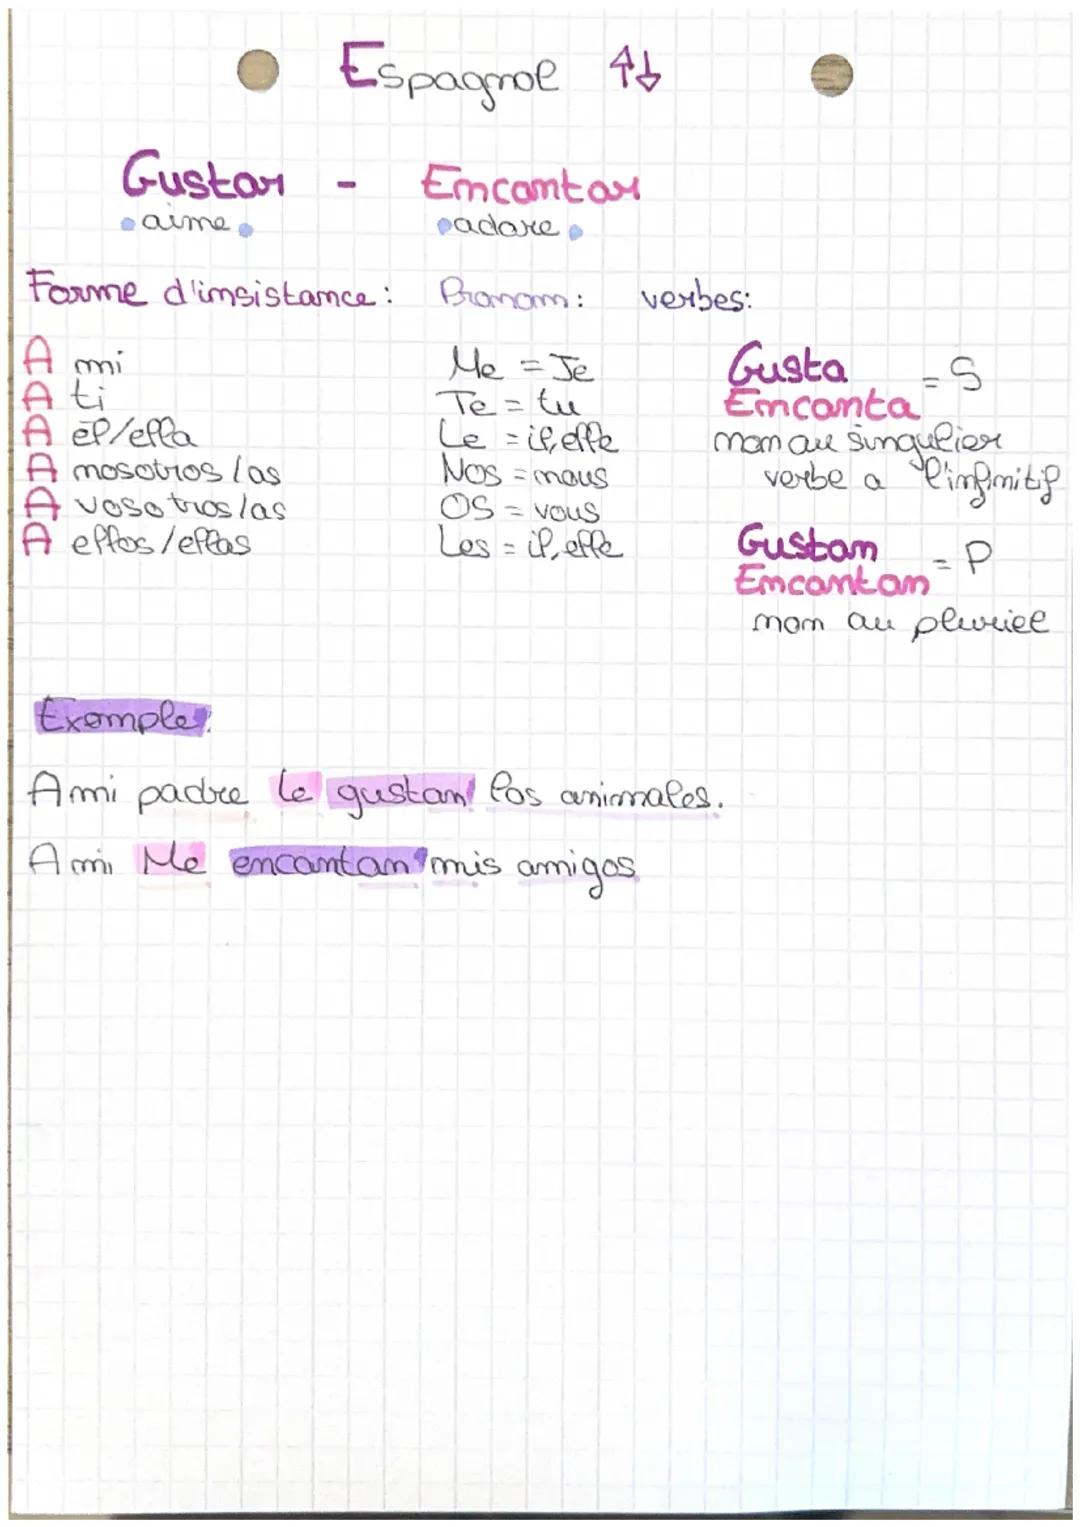 Espagnol
Gustar - Encantar
aime adore
Forme d'insistance: Pronom: verbes:
A mi Me = Je
A ti Te = tu
A él/ella Le = il, elle
A nosotros/as Nos = nous
A vosotros/as OS = vous
A ellos/ellas Les = il, elle
Gusta
Encanta = S
nom au singulier
verbe a l'infinitif
Gustan
Encantan = P
nom au pluriel
Exemple:
A mi padre le gustan los animales.
A mi Me encantan mis amigos